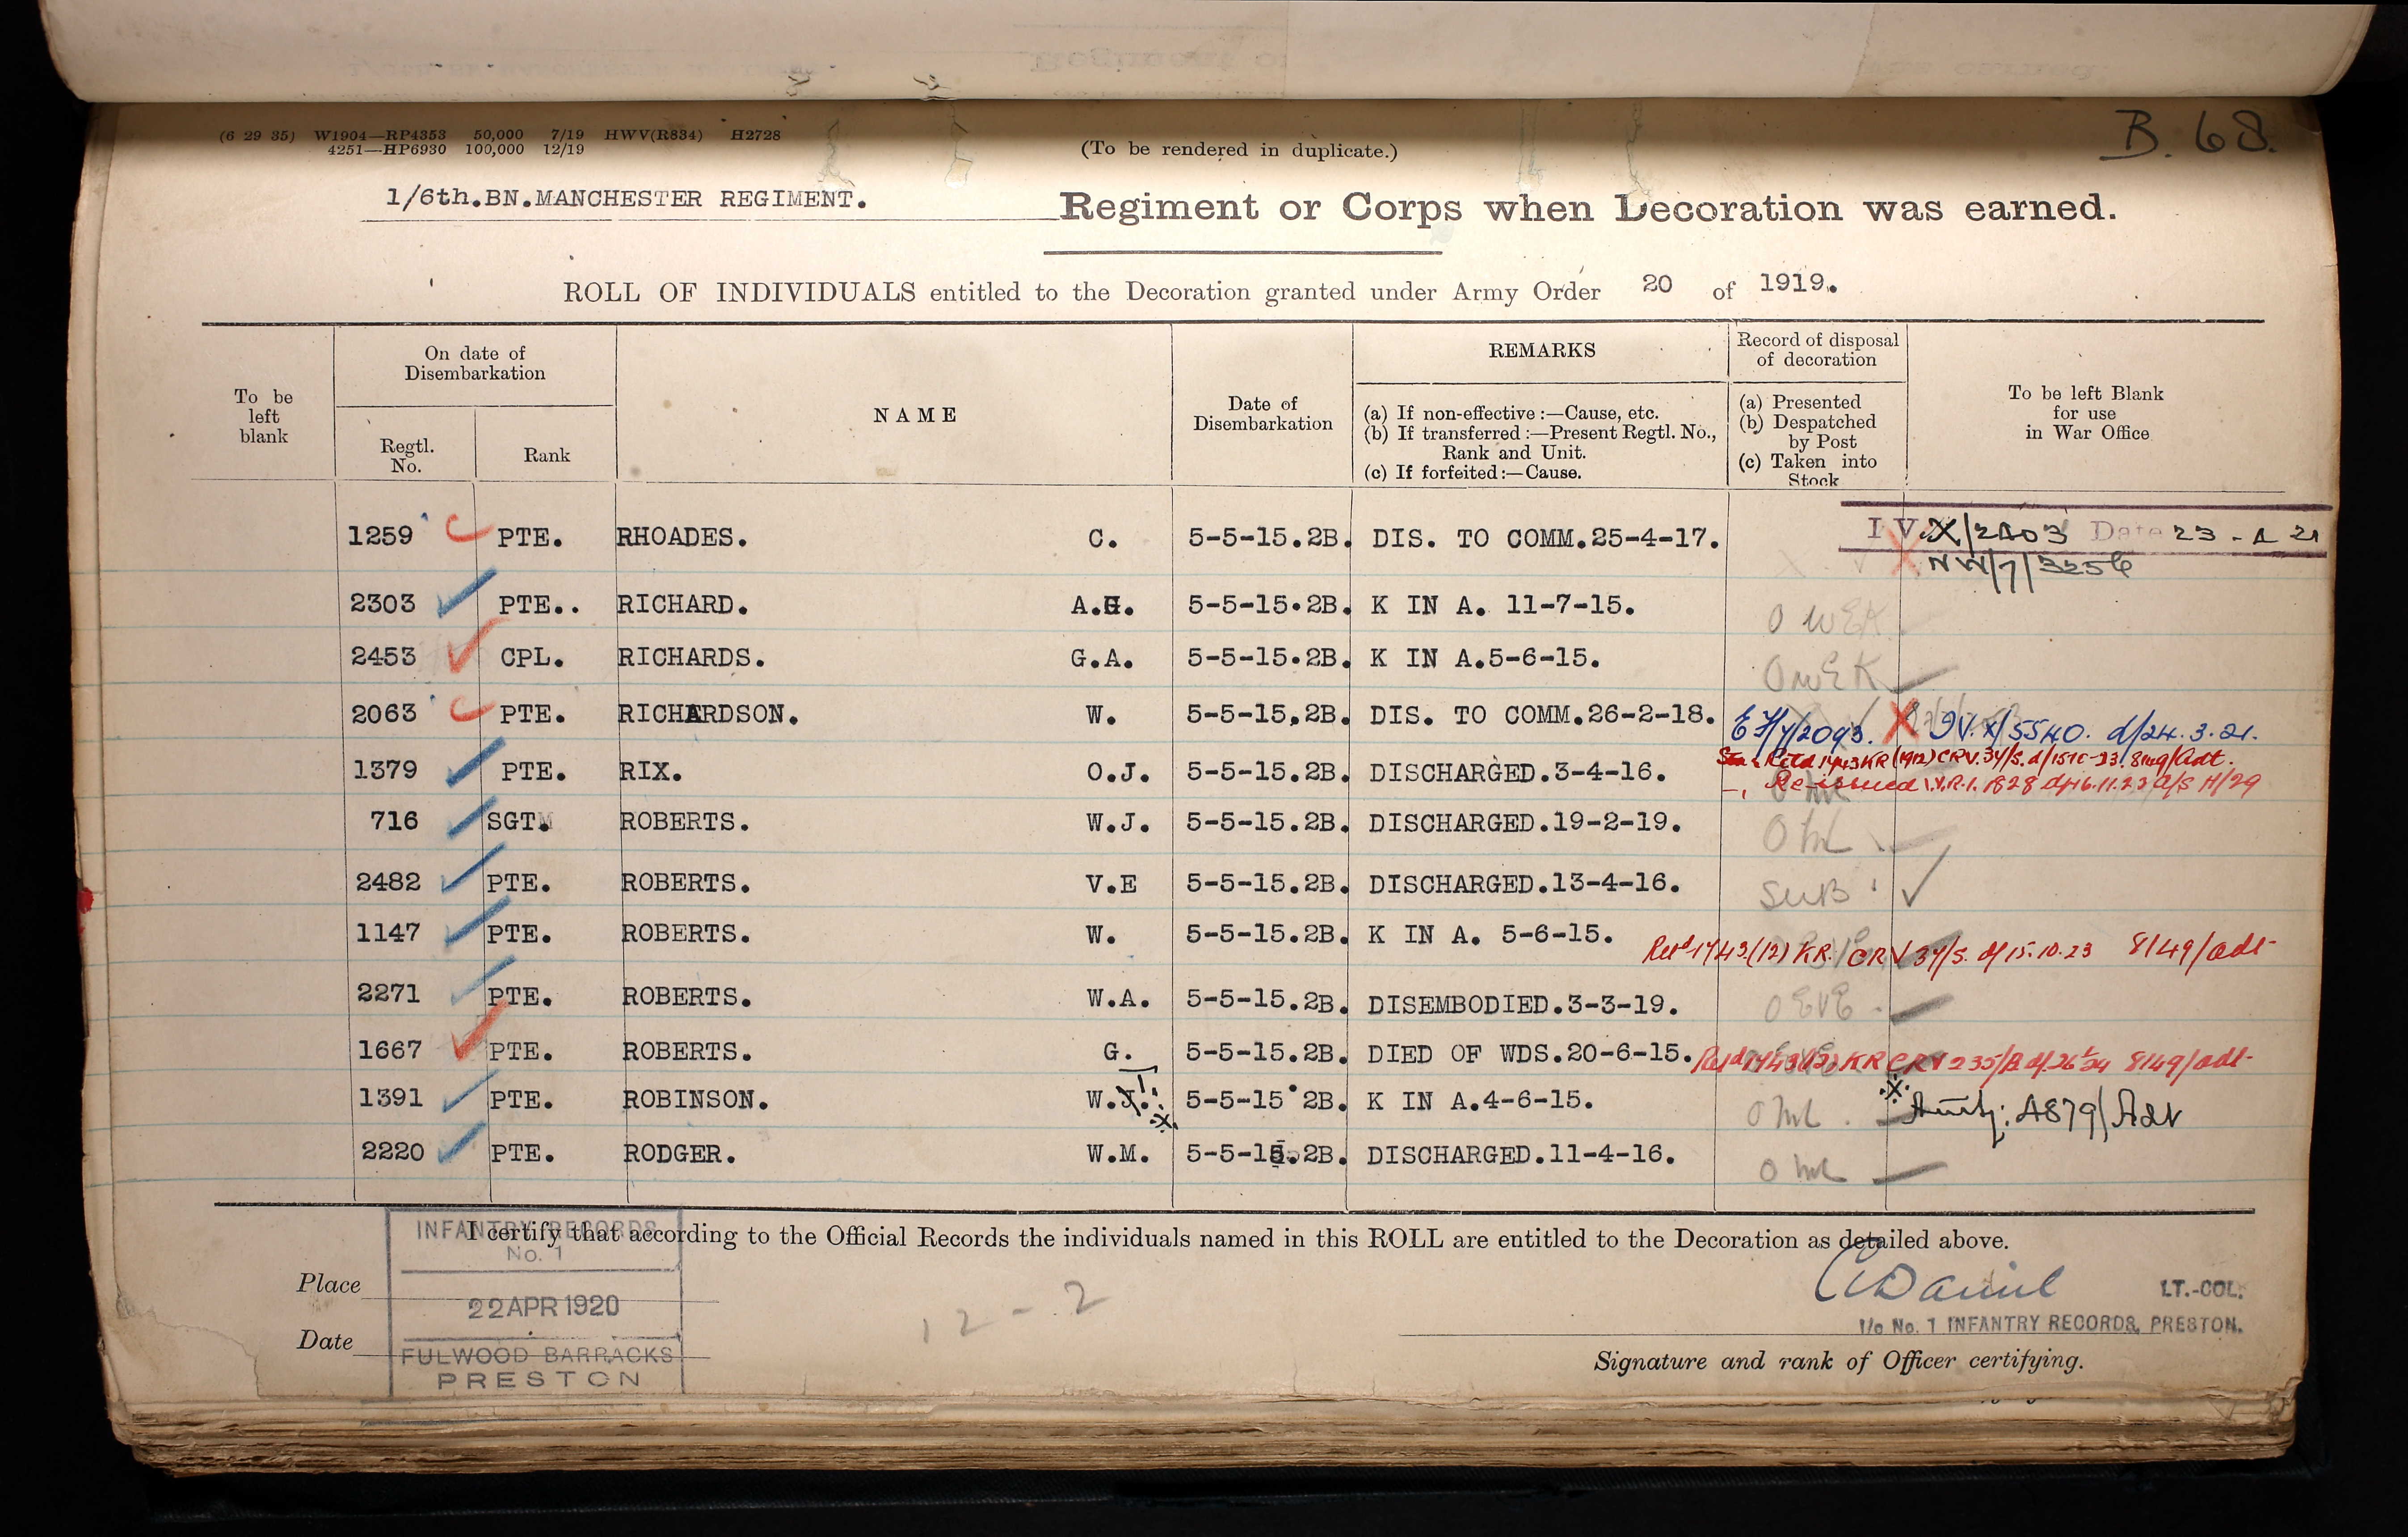 B. 68.
(6 29 35) W1904—RP4353 50,000 7/19 HWV(R834) H2728
4251—HP6930 100,000 12/19
(To be rendered in duplicate.)
1/6th.BN.MANCHESTER REGIMENT. Regiment or Corps when Decoration was earned.
ROLL OF INDIVIDUALS entitled to the Decoration granted under Army Order 20 of 1919.
To be left blank
On date of Disembarkation
Regtl. No.
Rank
NAME
Date of Disembarkation
REMARKS
(a) If non-effective :—Cause, etc.
(b) If transferred :—Present Regtl. No., Rank and Unit.
(c) If forfeited:—Cause.
Record of disposal of decoration
(a) Presented
(b) Despatched by Post
(c) Taken into Stock
To be left Blank for use in War Office
1259 PTE. RHOADES. C. 5-5-15.2B. DIS. TO COMM.25-4-17. IV X/2403 Date 23-4 21
NW/7/3256
2303 PTE.. RICHARD. A.H. 5-5-15.2B. K IN A. 11-7-15. O WEK
2453 CPL. RICHARDS. G.A. 5-5-15.2B. K IN A.5-6-15. OWEK
2063 PTE. RICHARDSON. W. 5-5-15.2B. DIS. TO COMM.26-2-18. EF/4/2093. IV.X/5540. d/24.3.21.
1379 PTE. RIX. O.J. 5-5-15.2B. DISCHARGED.3-4-16. Retd 1743 KR (1912) CRV.34/S. 8149/Adt.
Re-issued I.V.R.1.1828 d/16.11.23
716 SGT. ROBERTS. W.J. 5-5-15.2B. DISCHARGED.19-2-19.
2482 PTE. ROBERTS. V.E 5-5-15.2B. DISCHARGED.13-4-16. SUB
1147 PTE. ROBERTS. W. 5-5-15.2B. K IN A. 5-6-15. Retd 1743.(12) KR. CRV 34/S. d/15.10.23 8149/adt-
2271 PTE. ROBERTS. W.A. 5-5-15.2B. DISEMBODIED.3-3-19. OEVE
1667 PTE. ROBERTS. G. 5-5-15.2B. DIED OF WDS.20-6-15. Retd 1743(12) KR CRV 235/B 8149/adt-
1391 PTE. ROBINSON. W.J. 5-5-15 2B. K IN A.4-6-15. Auty: 4879/Adt
2220 PTE. RODGER. W.M. 5-5-15.2B. DISCHARGED.11-4-16.
I certify that according to the Official Records the individuals named in this ROLL are entitled to the Decoration as detailed above.
INFANTRY RECORDS
No. 1
22 APR 1920
FULWOOD BARRACKS
PRESTON
Place
Date
12-2
LT.-COL.
I/c No. 1 INFANTRY RECORDS, PRESTON.
Signature and rank of Officer certifying.